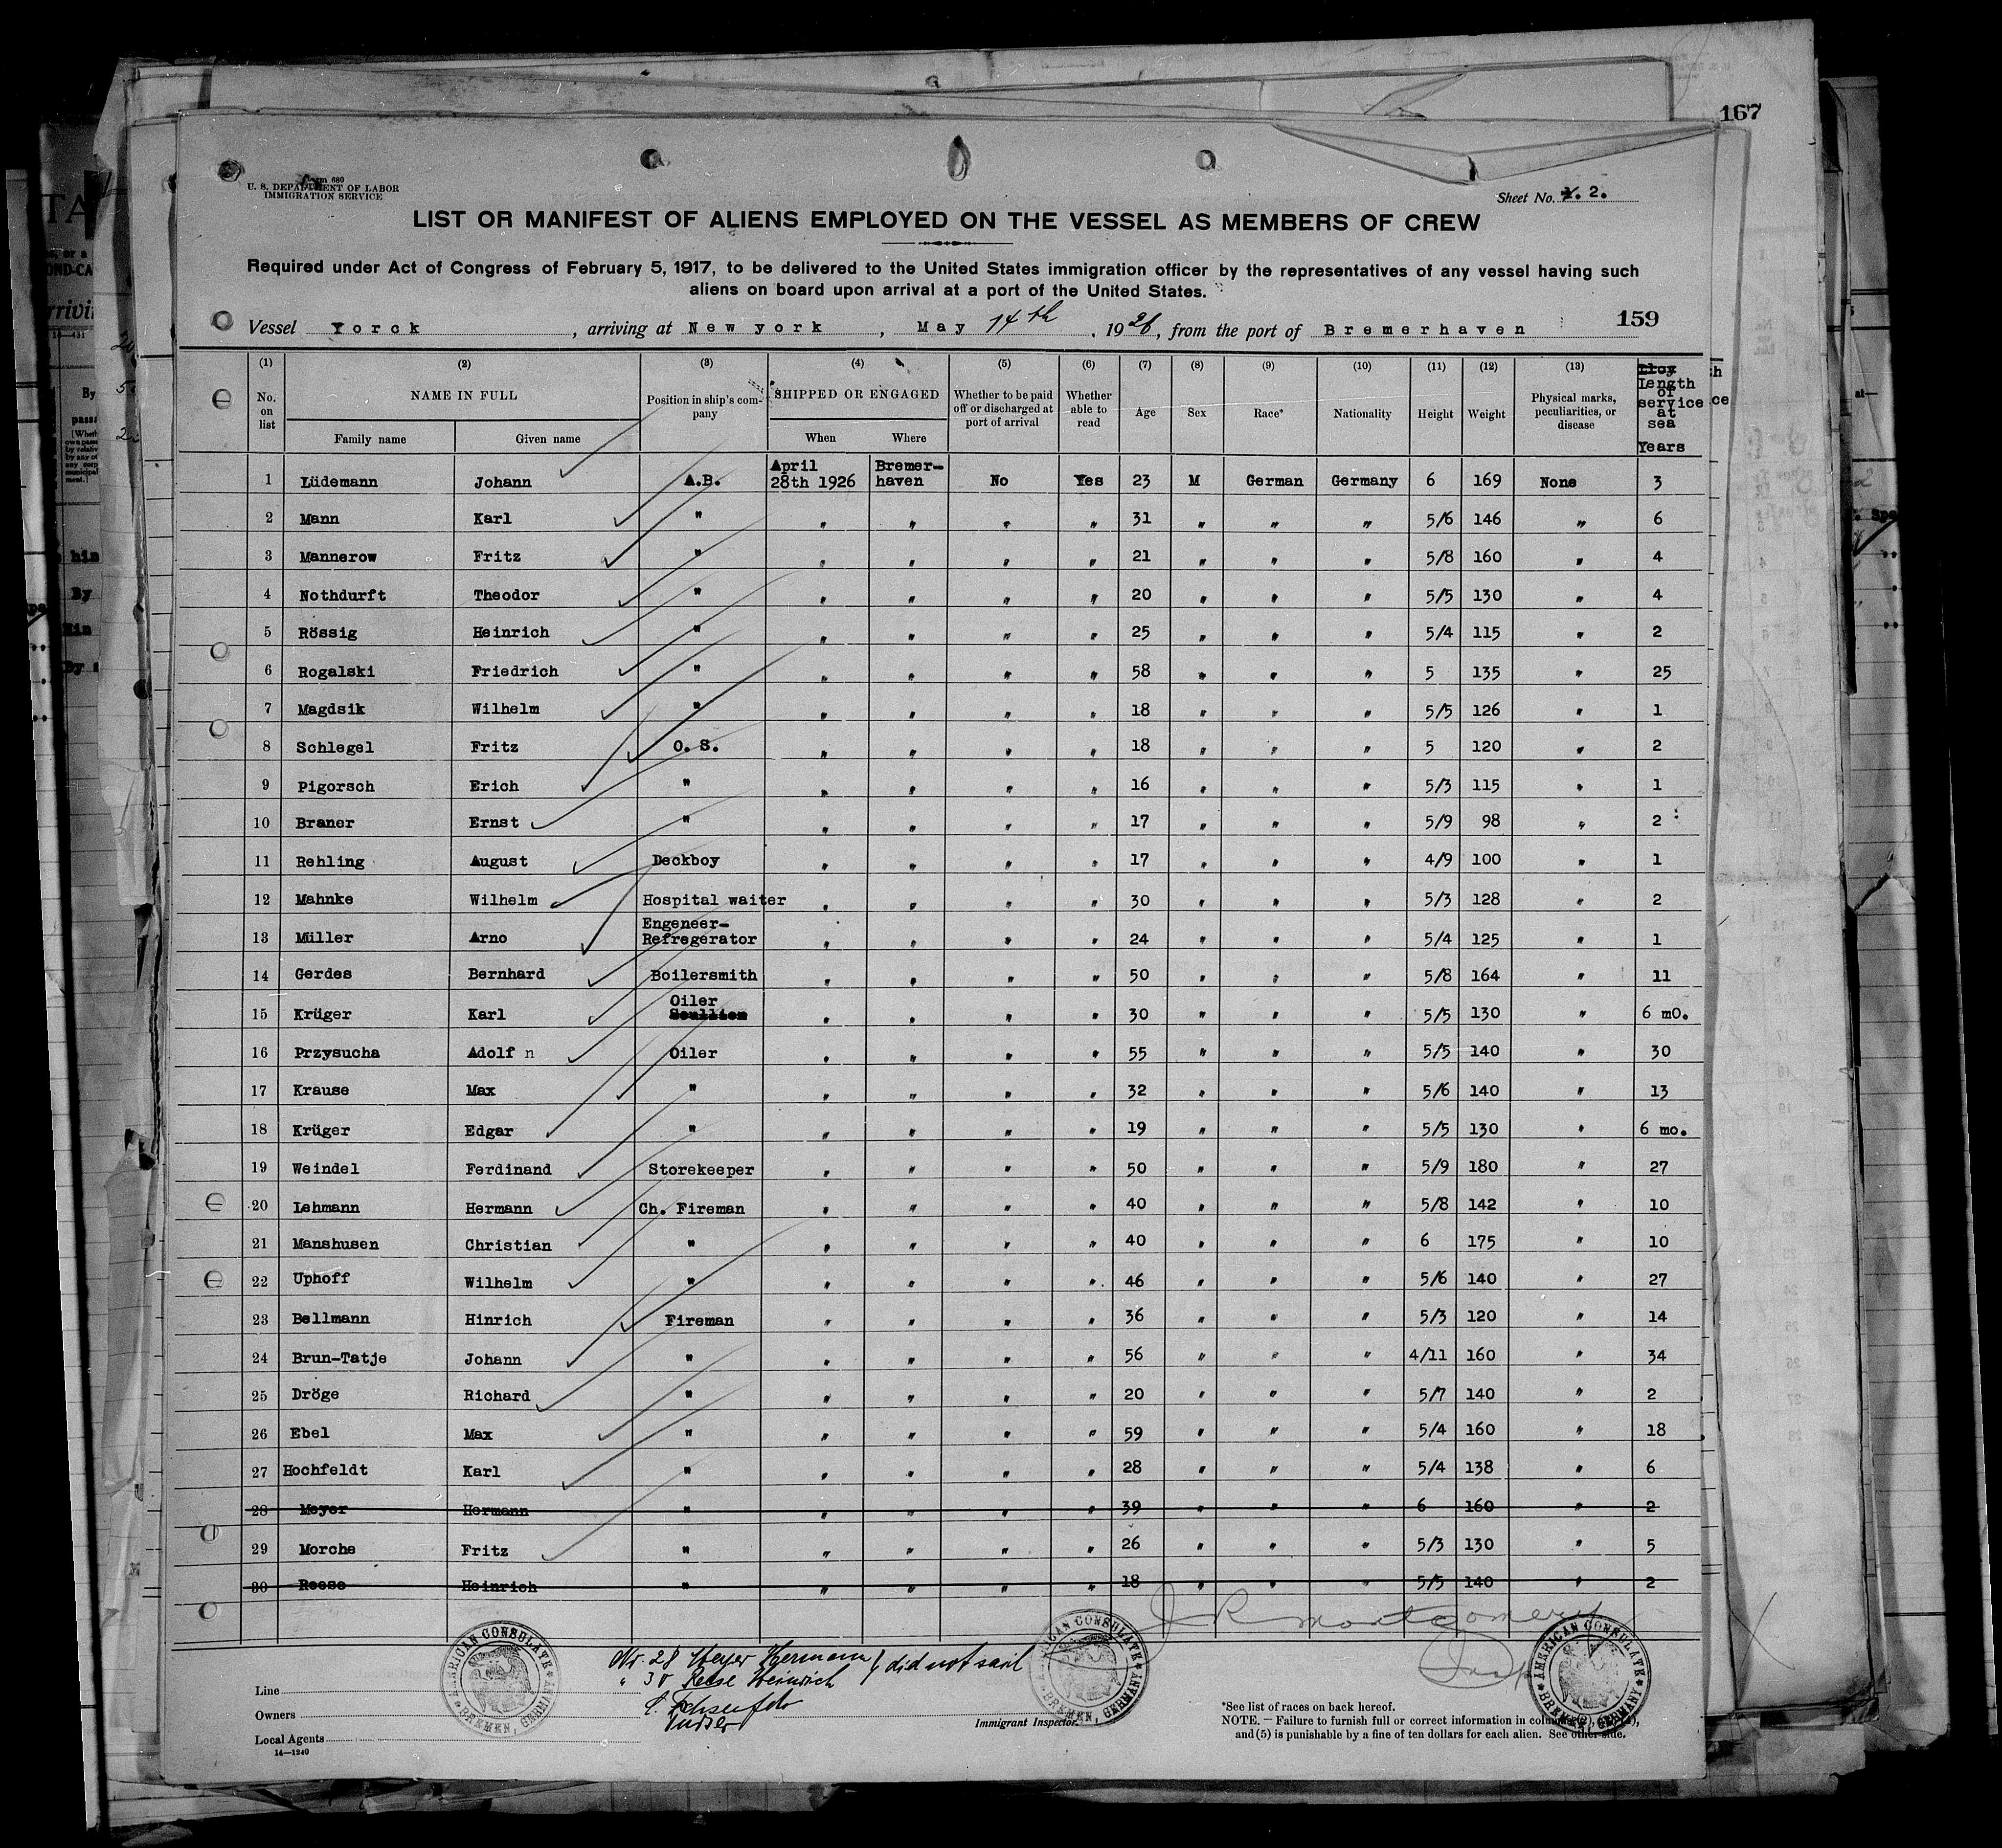 167
Form 680
U. S. DEPARTMENT OF LABOR
IMMIGRATION SERVICE
Sheet No. 2.
LIST OR MANIFEST OF ALIENS EMPLOYED ON THE VESSEL AS MEMBERS OF CREW
Required under Act of Congress of February 5, 1917, to be delivered to the United States immigration officer by the representatives of any vessel having such
aliens on board upon arrival at a port of the United States.
Vessel Yorck, arriving at New york, May 14th, 1926, from the port of Bremerhaven 159
(1) (2) (3) (4) (5) (6) (7) (8) (9) (10) (11) (12) (13)
No. on list NAME IN FULL Family name Given name Position in ship's company SHIPPED OR ENGAGED When Where Whether to be paid off or discharged at port of arrival Whether able to read Age Sex Race* Nationality Height Weight Physical marks, peculiarities, or disease length of service at sea Years
1 Lüdemann Johann A.B. April 28th 1926 Bremer-haven No Yes 23 M German Germany 6 169 None 3
2 Mann Karl " " " " " 31 " " " 5/6 146 " 6
3 Mannerow Fritz " " " " " 21 " " " 5/8 160 " 4
4 Nothdurft Theodor " " " " " 20 " " " 5/5 130 " 4
5 Rössig Heinrich " " " " " 25 " " " 5/4 115 " 2
6 Rogalski Friedrich " " " " " 58 " " " 5 135 " 25
7 Magdsik Wilhelm " " " " " 18 " " " 5/5 126 " 1
8 Schlegel Fritz O. S. " " " " 18 " " " 5 120 " 2
9 Pigorsch Erich " " " " " 16 " " " 5/3 115 " 1
10 Braner Ernst " " " " " 17 " " " 5/9 98 " 2
11 Rehling August Deckboy " " " " 17 " " " 4/9 100 " 1
12 Mahnke Wilhelm Hospital waiter " " " " 30 " " " 5/3 128 " 2
13 Müller Arno Engeneer-Refregerator " " " " 24 " " " 5/4 125 " 1
14 Gerdes Bernhard Boilersmith " " " " 50 " " " 5/8 164 " 11
15 Krüger Karl Oiler Scullion " " " " 30 " " " 5/5 130 " 6 mO.
16 Przysucha Adolf n Oiler " " " " 55 " " " 5/5 140 " 30
17 Krause Max " " " " " 32 " " " 5/6 140 " 13
18 Krüger Edgar " " " " " 19 " " " 5/5 130 " 6 mo.
19 Weindel Ferdinand Storekeeper " " " " 50 " " " 5/9 180 " 27
20 Lehmann Hermann Ch. Fireman " " " " 40 " " " 5/8 142 " 10
21 Manshusen Christian " " " " " 40 " " " 6 175 " 10
22 Uphoff Wilhelm " " " " " 46 " " " 5/6 140 " 27
23 Bellmann Hinrich Fireman " " " " 36 " " " 5/3 120 " 14
24 Brun-Tatje Johann " " " " " 56 " " " 4/11 160 " 34
25 Dröge Richard " " " " " 20 " " " 5/7 140 " 2
26 Ebel Max " " " " " 59 " " " 5/4 160 " 18
27 Hochfeldt Karl " " " " " 28 " " " 5/4 138 " 6
28 Meyer Hermann " " " " " 39 " " " 6 160 " 2
29 Morche Fritz " " " " " 26 " " " 5/3 130 " 5
30 Reese Heinrich " " " " " 18 " " " 5/5 140 " 2
J R Montgomery
Insp
Nr. 28 Meyer Hermann } did not sail
" 30 Reese Heinrich
AMERICAN CONSULATE BREMEN, GERMANY
AMERICAN CONSULATE BREMEN, GERMANY
AMERICAN CONSULATE BREMEN, GERMANY
Line
Owners
Local Agents
14—1240
Immigrant Inspector.
*See list of races on back hereof.
NOTE.—Failure to furnish full or correct information in columns (2),
and (5) is punishable by a fine of ten dollars for each alien. See other side.